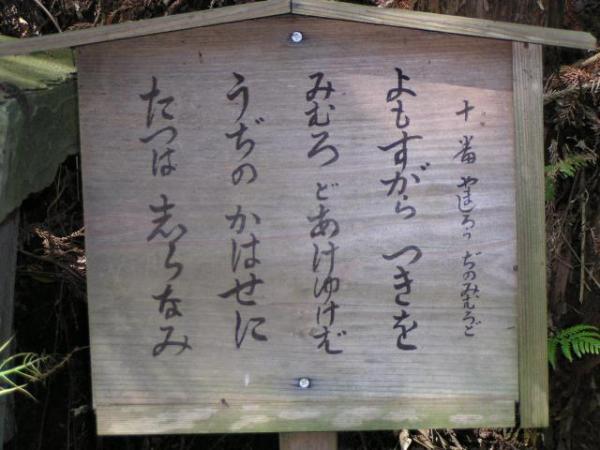 十番 やましろうぢのみむろど
よもすがら つきを
みむろどあけゆけば
うぢの かはせに
たつは 志らなみ